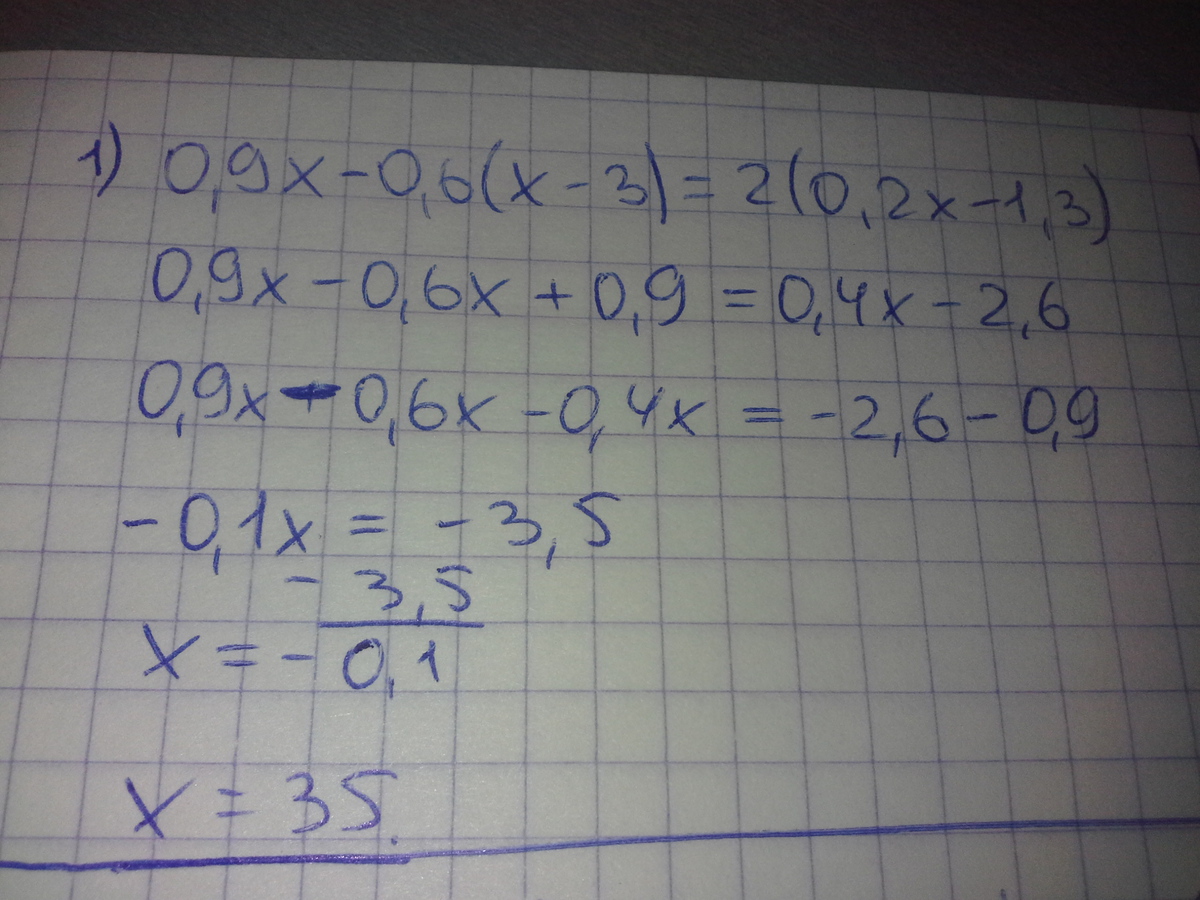 1) 0,9x-0,6(x-3)=2(0,2x-1,3)
0,9x-0,6x+0,9=0,4x-2,6
0,9x-0,6x-0,4x=-2,6-0,9
-0,1x=-3,5
x=-3,5/-0,1
x=35.